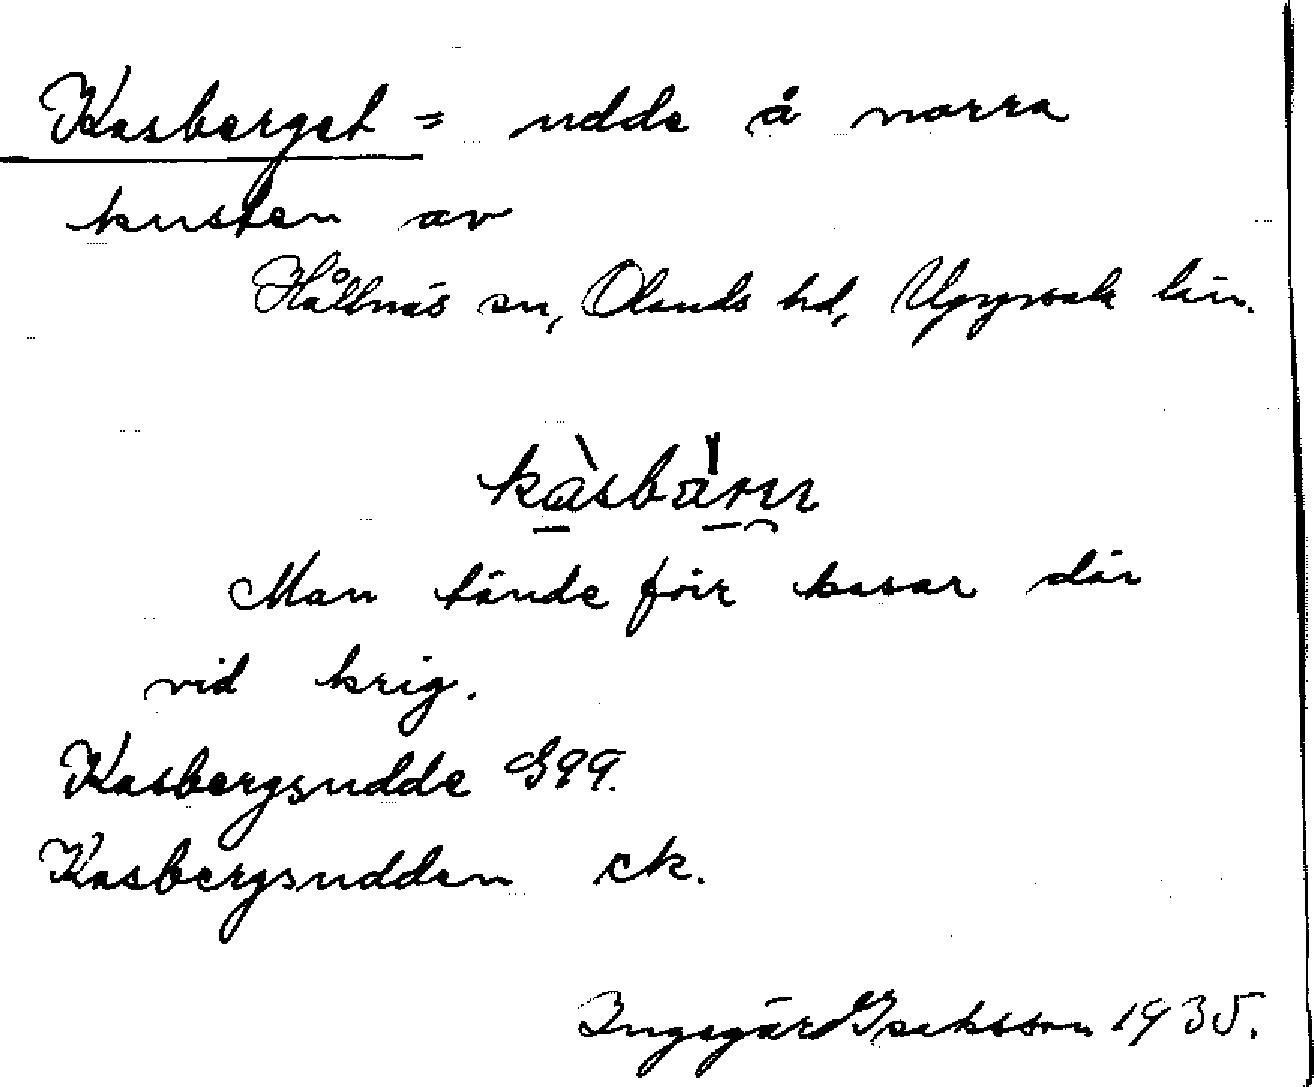 Kasberget = udde å norra
kusten av
Hållnäs sn, Olands hd, Uppsala län.
kàsbä̀rn
Man tände förr kasar där
vid krig.
Kasbergsudde G99.
Kasbergsudden ek.
Ingegärd Isaksson 1935.